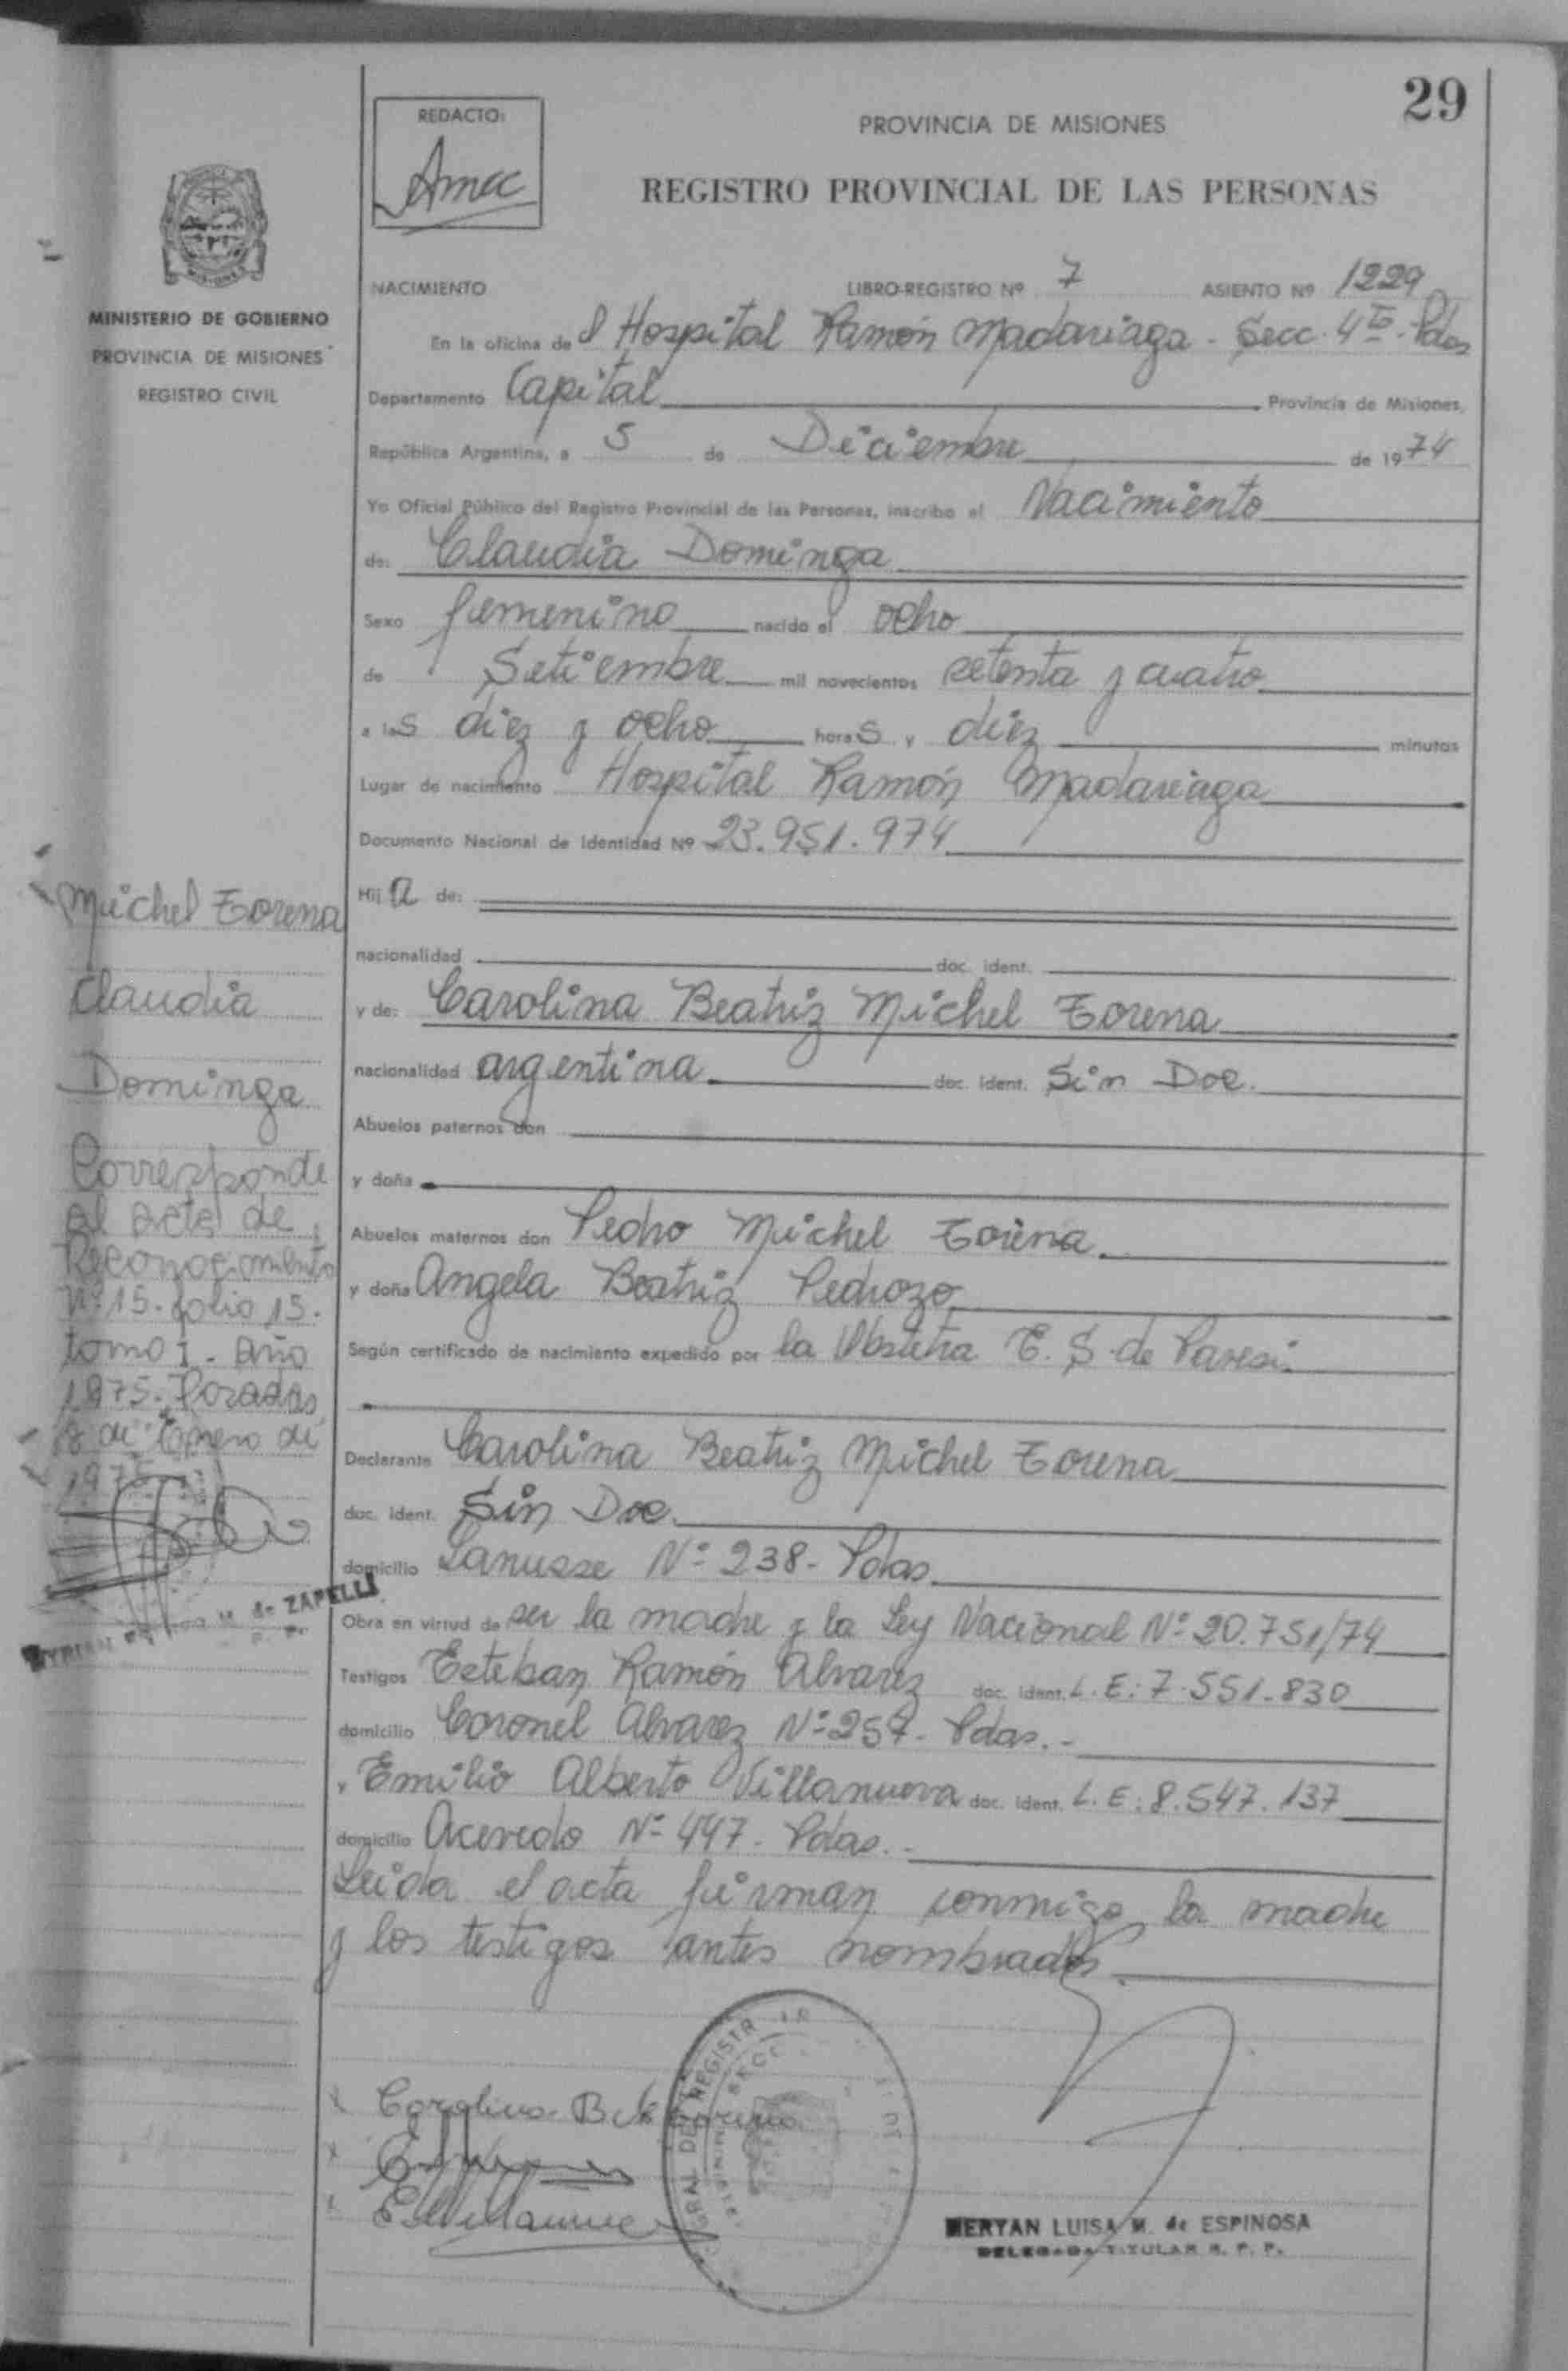 29
REDACTO:
PROVINCIA DE MISIONES
REGISTRO PROVINCIAL DE LAS PERSONAS
MINISTERIO DE GOBIERNO
PROVINCIA DE MISIONES
REGISTRO CIVIL
NACIMIENTO LIBRO-REGISTRO Nº 7 ASIENTO Nº 1229
En la oficina del Hospital Ramón Madariaga - Secc. 4ta - Pdas
Departamento Capital Provincia de Misiones,
República Argentina, a 5 de Diciembre de 1974
Yo Oficial Público del Registro Provincial de las Personas, inscribo el Nacimiento
de: Claudia Dominga
Sexo femenino nacido el ocho
de Setiembre mil novecientos setenta y cuatro
a las diez y ocho horas y diez minutos
Lugar de nacimiento Hospital Ramón Madariaga
Documento Nacional de Identidad Nº 23.951.974
Hija de:
nacionalidad doc. ident.
y de: Carolina Beatriz Michel Torena
nacionalidad argentina doc. ident. Sin Doc.
Abuelos paternos don
y doña
Abuelos maternos don Pedro Michel Torena
y doña Angela Beatriz Pedrozo
Según certificado de nacimiento expedido por la Obstetra E. S. de Paresi.
Declarante Carolina Beatriz Michel Torena
doc. ident. Sin Doc.
domicilio Lanusse Nº 238 - Pdas
Obra en virtud de ser la madre y la Ley Nacional Nº 20.751/74
Testigos Esteban Ramón Alvarez doc. ident. L.E: 7.551.830
domicilio Coronel Alvarez Nº 257 - Pdas.-
y Emilio Alberto Villanueva doc. ident. L.E: 8.547.137
domicilio Acevedo Nº 447. Pdas.-
Leida el acta firman conmigo la madre
y los testigos antes nombrados.
Michel Torena
Claudia
Dominga
Corresponde
al acta de
Reconocimiento
Nº 15. folio 15.
tomo I - Año
1975. Posadas
8 de Enero de
1975
de ZAPELLI
MERYAN LUISA M. de ESPINOSA
DELEGADA TITULAR R. P. P.